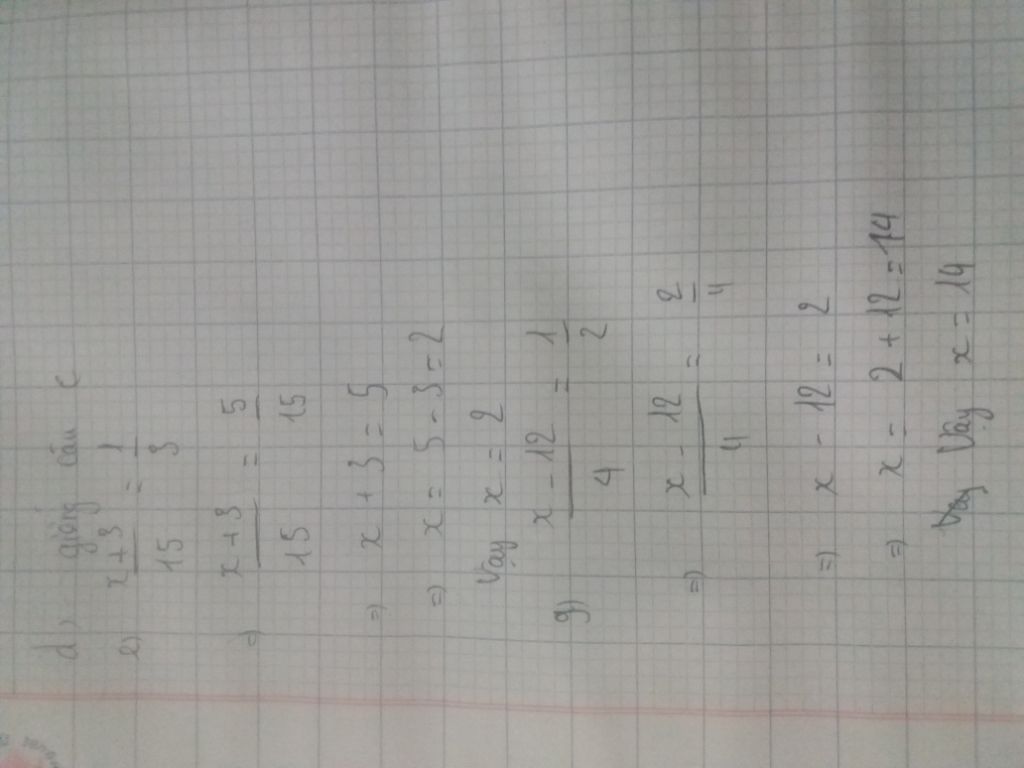 d) giống câu c
e) x+3/15 = 1/3
=) x+3/15 = 5/15
=) x + 3 = 5
=) x = 5 - 3 = 2
Vậy x = 2
g) x - 12/4 = 1/2
=) x - 12/4 = 2/4
=) x - 12 = 2
=) x - 2 + 12 = 14
Vậy Vậy x = 14